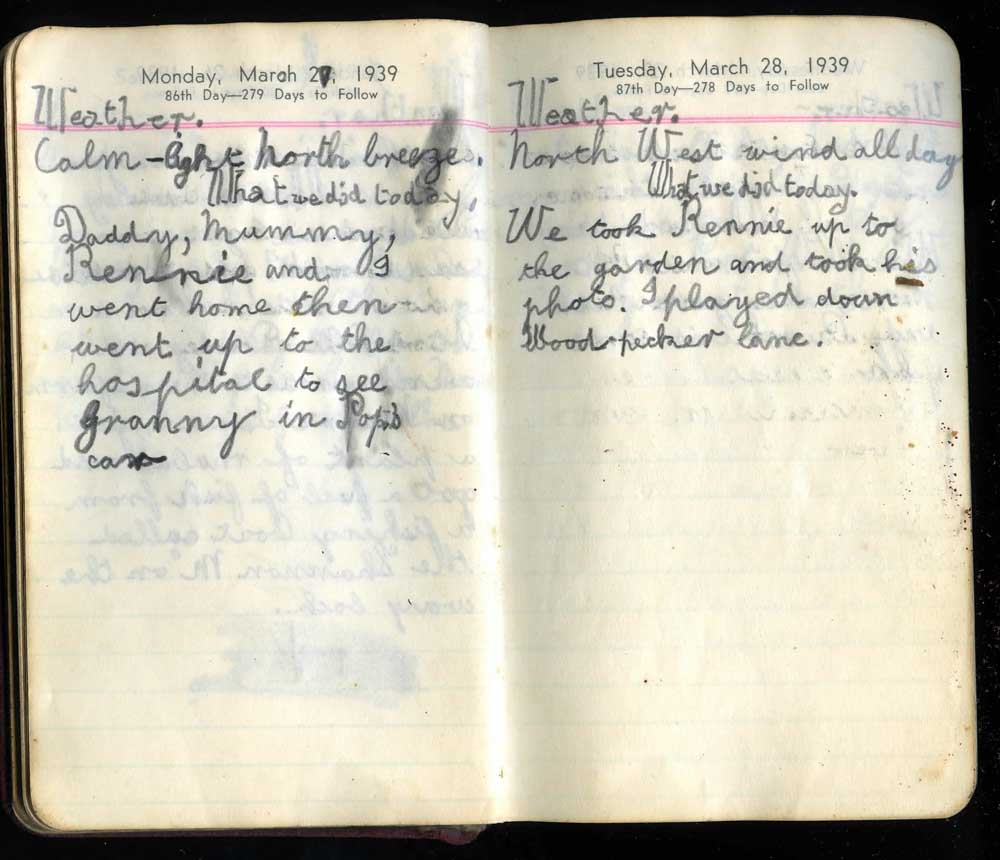 Monday, March 27, 1939
86th Day—279 Days to Follow
Weather.
Calm - light North breeze.
What we did today,
Daddy, Mummy,
Rennie and I
went home then
went up to the
hospital to see
Granny in Pop's
car
Tuesday, March 28, 1939
87th Day—278 Days to Follow
Weather.
North West wind all day
What we did today.
We took Rennie up to
the garden and took his
photo. I played down
Wood-pecker lane.